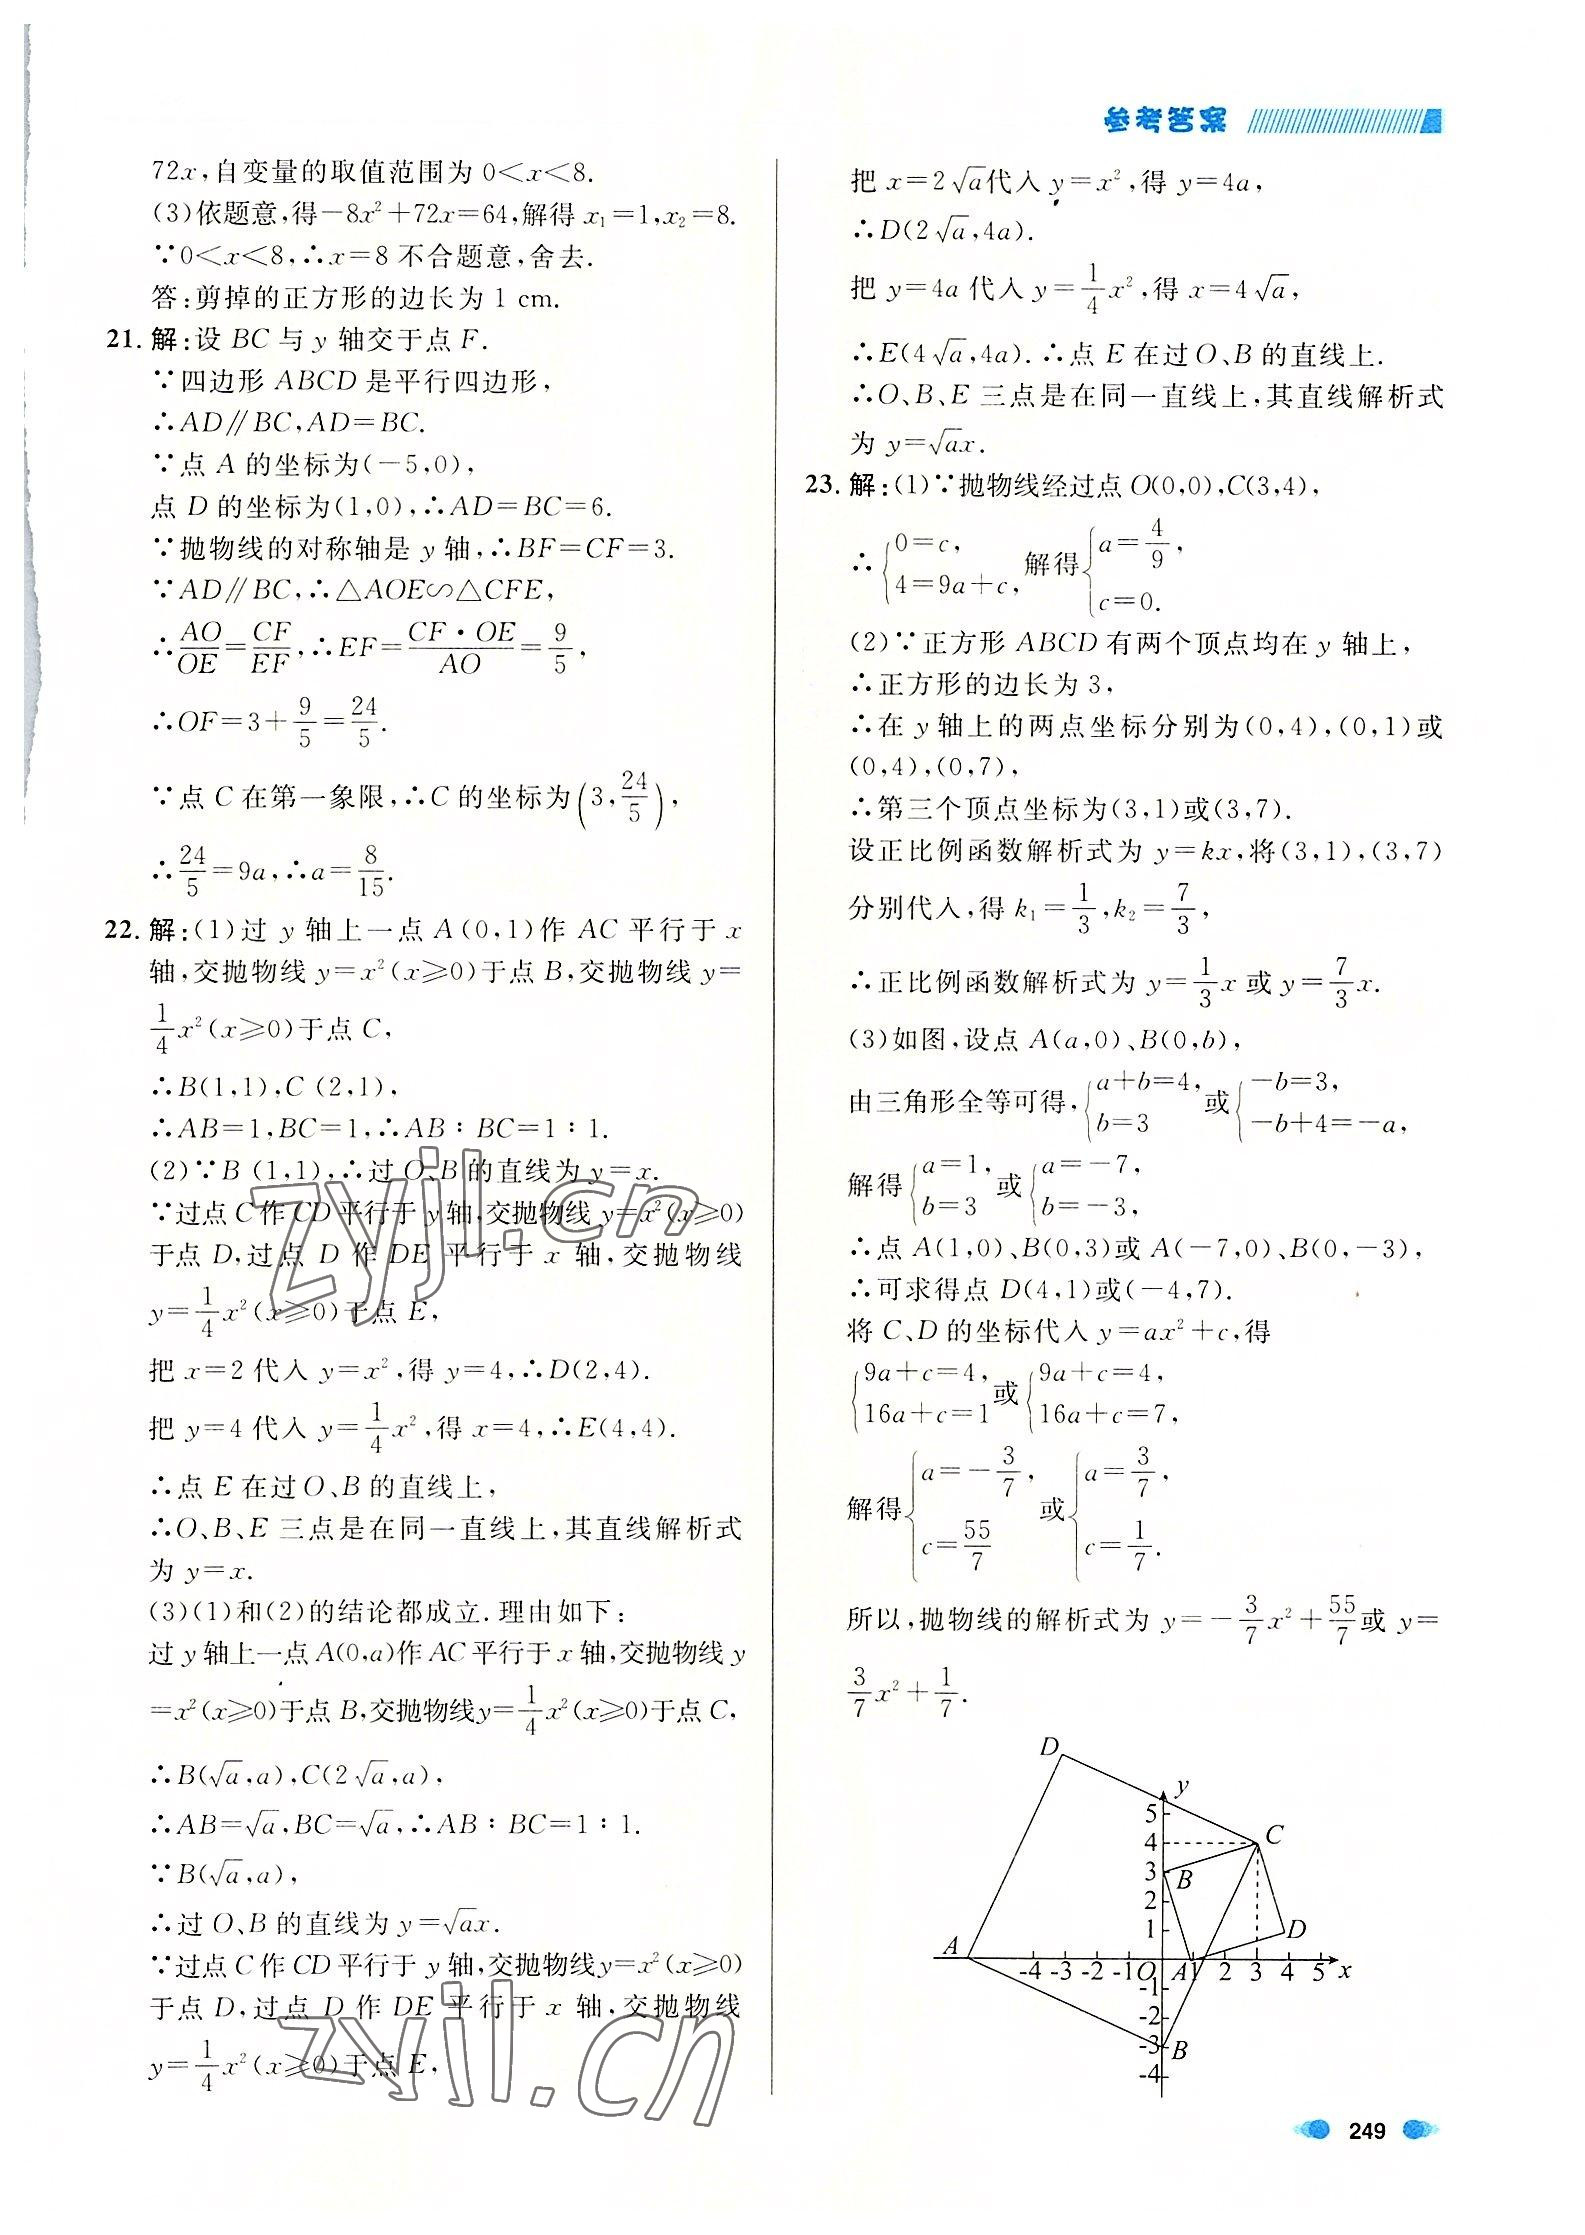 参考答案
72x,自变量的取值范围为 0<x<8.
(3)依题意,得−8x²+72x=64,解得 x₁=1,x₂=8.
∵0<x<8,∴x=8 不合题意,舍去.
答:剪掉的正方形的边长为 1 cm.
21. 解:设 BC 与 y 轴交于点 F.
∵四边形 ABCD 是平行四边形,
∴AD∥BC,AD=BC.
∵点 A 的坐标为(−5,0),
点 D 的坐标为(1,0),∴AD=BC=6.
∵抛物线的对称轴是 y 轴,∴BF=CF=3.
∵AD∥BC,∴△AOE∽△CFE,
∴AO/OE=CF/EF,∴EF=CF·OE/AO=9/5,
∴OF=3+9/5=24/5.
∵点 C 在第一象限,∴C 的坐标为(3,24/5),
∴24/5=9a,∴a=8/15.
22. 解:(1)过 y 轴上一点 A(0,1)作 AC 平行于 x
轴,交抛物线 y=x²(x≥0)于点 B,交抛物线 y=
1/4x²(x≥0)于点 C,
∴B(1,1),C (2,1),
∴AB=1,BC=1,∴AB∶BC=1∶1.
(2)∵B (1,1),∴过 O、B 的直线为 y=x.
∵过点 C 作 CD 平行于 y 轴,交抛物线 y=x²(x≥0)
于点 D,过点 D 作 DE 平行于 x 轴,交抛物线
y=1/4x²(x≥0)于点 E,
把 x=2 代入 y=x²,得 y=4,∴D(2,4).
把 y=4 代入 y=1/4x²,得 x=4,∴E(4,4).
∴点 E 在过 O、B 的直线上,
∴O、B、E 三点是在同一直线上,其直线解析式
为 y=x.
(3)(1)和(2)的结论都成立.理由如下:
过 y 轴上一点 A(0,a)作 AC 平行于 x 轴,交抛物线 y
=x²(x≥0)于点 B,交抛物线y=1/4x²(x≥0)于点 C,
∴B(√a,a),C(2√a,a),
∴AB=√a,BC=√a,∴AB∶BC=1∶1.
∵B(√a,a),
∴过 O、B 的直线为 y=√ax.
∵过点 C 作 CD 平行于 y 轴,交抛物线y=x²(x≥0)
于点 D,过点 D 作 DE 平行于 x 轴,交抛物线
y=1/4x²(x≥0)于点 E,
把 x=2√a代入 y=x²,得 y=4a,
∴D(2√a,4a).
把 y=4a 代入 y=1/4x²,得 x=4√a,
∴E(4√a,4a).∴点 E 在过 O、B 的直线上.
∴O、B、E 三点是在同一直线上,其直线解析式
为 y=√ax.
23. 解:(1)∵抛物线经过点 O(0,0),C(3,4),
∴{0=c, 4=9a+c, 解得{a=4/9, c=0.
(2)∵正方形 ABCD 有两个顶点均在 y 轴上,
∴正方形的边长为 3,
∴在 y 轴上的两点坐标分别为(0,4),(0,1)或
(0,4),(0,7),
∴第三个顶点坐标为(3,1)或(3,7).
设正比例函数解析式为 y=kx,将(3,1),(3,7)
分别代入,得 k₁=1/3,k₂=7/3,
∴正比例函数解析式为 y=1/3x 或 y=7/3x.
(3)如图,设点 A(a,0)、B(0,b),
由三角形全等可得,{a+b=4, b=3 或{−b=3, −b+4=−a,
解得{a=1, b=3 或{a=−7, b=−3,
∴点 A(1,0)、B(0,3)或 A(−7,0)、B(0,−3),
∴可求得点 D(4,1)或(−4,7).
将 C、D 的坐标代入 y=ax²+c,得
{9a+c=4, 16a+c=1 或{9a+c=4, 16a+c=7,
解得{a=−3/7, c=55/7 或{a=3/7, c=1/7.
所以,抛物线的解析式为 y=−3/7x²+55/7或 y=
3/7x²+1/7.
D
y
5
4
C
3
B
2
1
D
A
-4 -3 -2 -1 O A 1 2 3 4 5 x
-1
-2
-3 B
-4
249
zyjl.cn
zyjl.cn